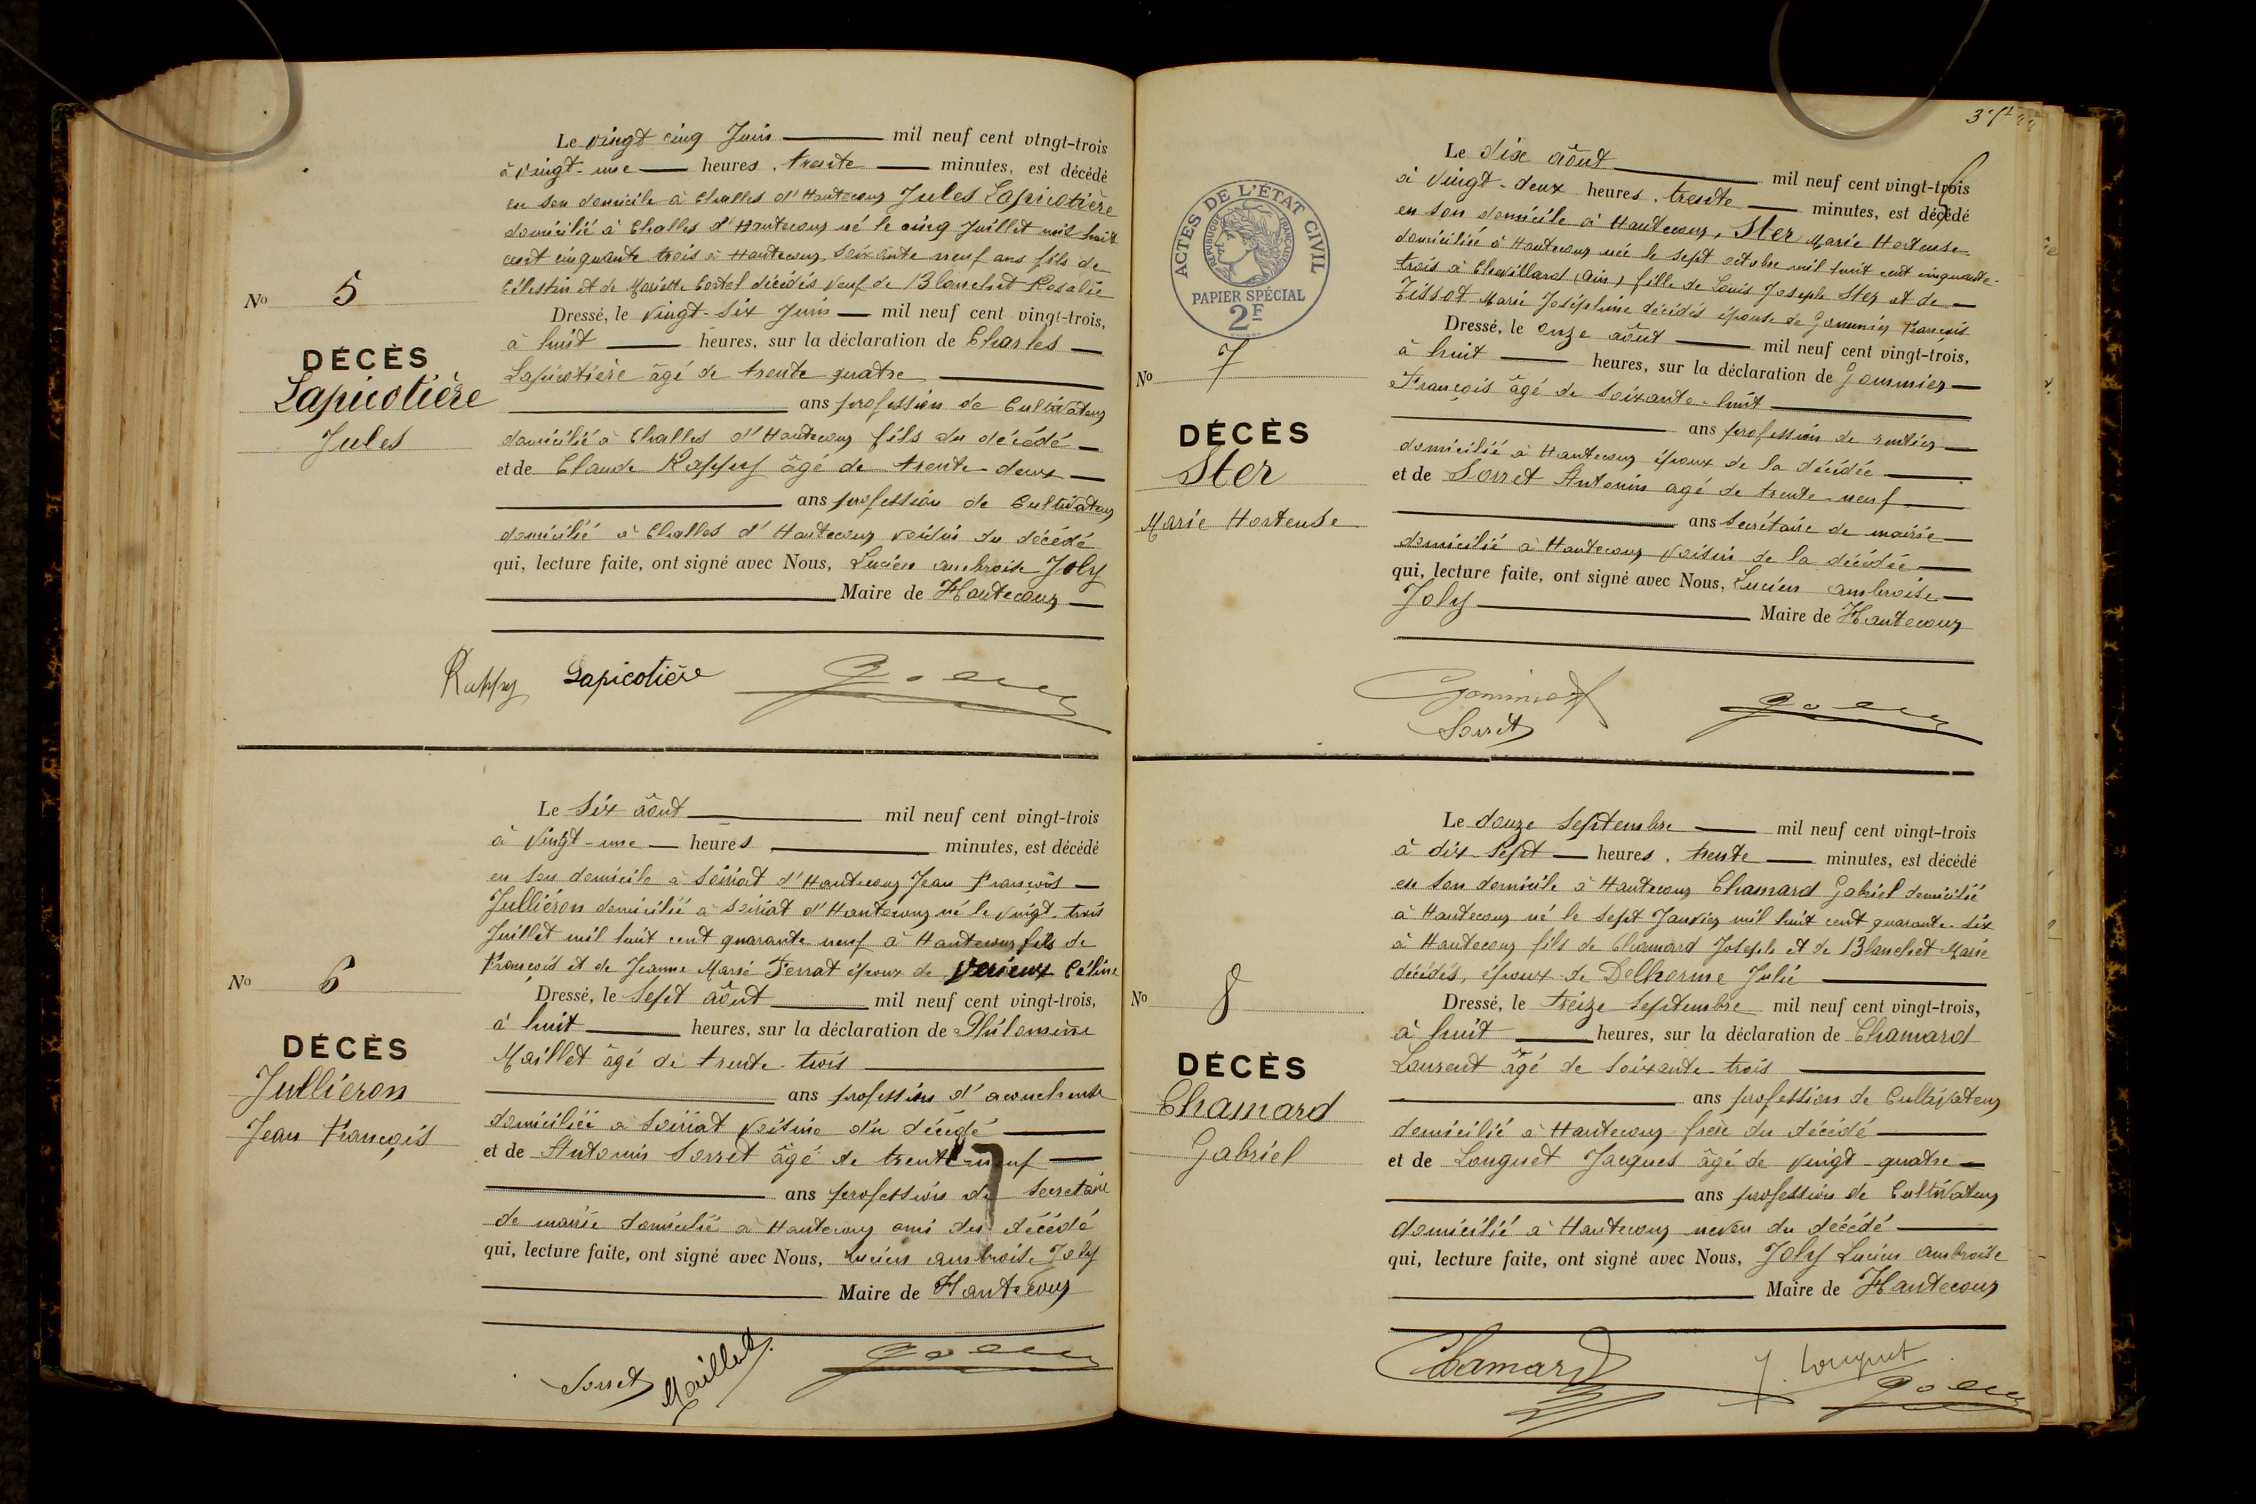 Le vingt cinq Juin mil neuf cent vingt-trois
à vingt-une heures, trente minutes, est décédé
en son domicile à Challes d'Hautecour Jules Lapicotière
domicilié à Challes d'Hautecour né le cinq Juillet mil huit
cent cinquante trois à Hautecour, soixante neuf ans fils de
Célestin et de Mariette Cortel décédés veuf de Blanchet Rosalie
No 5
Dressé, le vingt-six Juin mil neuf cent vingt-trois,
à huit heures, sur la déclaration de Charles
DÉCÈS
Lapicotière
Jules
Lapicotière âgé de trente quatre
ans profession de Cultivateur
domicilié à Challes d'Hautecour fils du décédé
et de Claude Rappy âgé de trente-deux
ans profession de Cultivateur
domicilié à Challes d'Hautecour voisin du décédé
qui, lecture faite, ont signé avec Nous, Lucien ambroise Joly
Maire de Hautecour
Rappy Lapicotière Joly
Le six août mil neuf cent vingt-trois
à vingt-une heures minutes, est décédé
en son domicile à Soiriat d'Hautecour Jean François
Jullieron domicilié à Soiriat d'Hautecour né le vingt-trois
Juillet mil huit cent quarante neuf à Hautecour fils de
François et de Jeanne Marie Ferrat époux de Verieux Céline
No 6
Dressé, le sept août mil neuf cent vingt-trois,
à huit heures, sur la déclaration de Philomène
DÉCÈS
Jullieron
Jean François
Maillet âgé de trente-trois
ans profession d'acoucheuse
domiciliée à Soiriat voisine du décédé
et de Antonin Sorret âgé de trente-neuf
ans profession de secretaire
de mairie domicilié à Hautecour ami du décédé
qui, lecture faite, ont signé avec Nous, Lucien ambroise Joly
Maire de Hautecour
Sorret Maillet Joly
ACTES DE L'ÉTAT CIVIL
RÉPUBLIQUE FRANÇAISE
PAPIER SPÉCIAL
2F
Le dix août mil neuf cent vingt-trois
à vingt-deux heures, trente minutes, est décédé
en son domicile à Hautecour, Ster Marie Hortense
domiciliée à Hautecour née le sept octobre mil huit cent cinquante-
trois à Chevillard (Ain) fille de Louis Joseph Ster et de
Tissot Marie Joséphine décédés épouse de Gommier François
No 7
Dressé, le onze août mil neuf cent vingt-trois,
à huit heures, sur la déclaration de Gommier
DÉCÈS
Ster
Marie Hortense
François âgé de soixante-huit
ans profession de rentier
domicilié à Hautecour époux de la décédée
et de Sorret Antonin agé de trente-neuf
ans secrétaire de mairie
domicilié à Hautecour voisin de la décédée
qui, lecture faite, ont signé avec Nous, Lucien ambroise
Joly Maire de Hautecour
Sorret Joly
Le douze septembre mil neuf cent vingt-trois
à dix-sept heures, trente minutes, est décédé
en son domicile à Hautecour Chamard Gabriel domicilié
à Hautecour né le sept Janvier mil huit cent quarante-six
à Hautecour fils de Chamard Joseph et de Blanchet Marie
décédés, époux de Delhorme Julie
No 8
Dressé, le treize septembre mil neuf cent vingt-trois,
à huit heures, sur la déclaration de Chamard
DÉCÈS
Chamard
Gabriel
Laurent âgé de soixante-trois
ans profession de Cultivateur
domicilié à Hautecour frère du décédé
et de Longuet Jacques âgé de vingt-quatre
ans profession de Cultivateur
domicilié à Hautecour neveu du décédé
qui, lecture faite, ont signé avec Nous, Joly Lucien ambroise
Maire de Hautecour
Chamard J. Longuet Joly